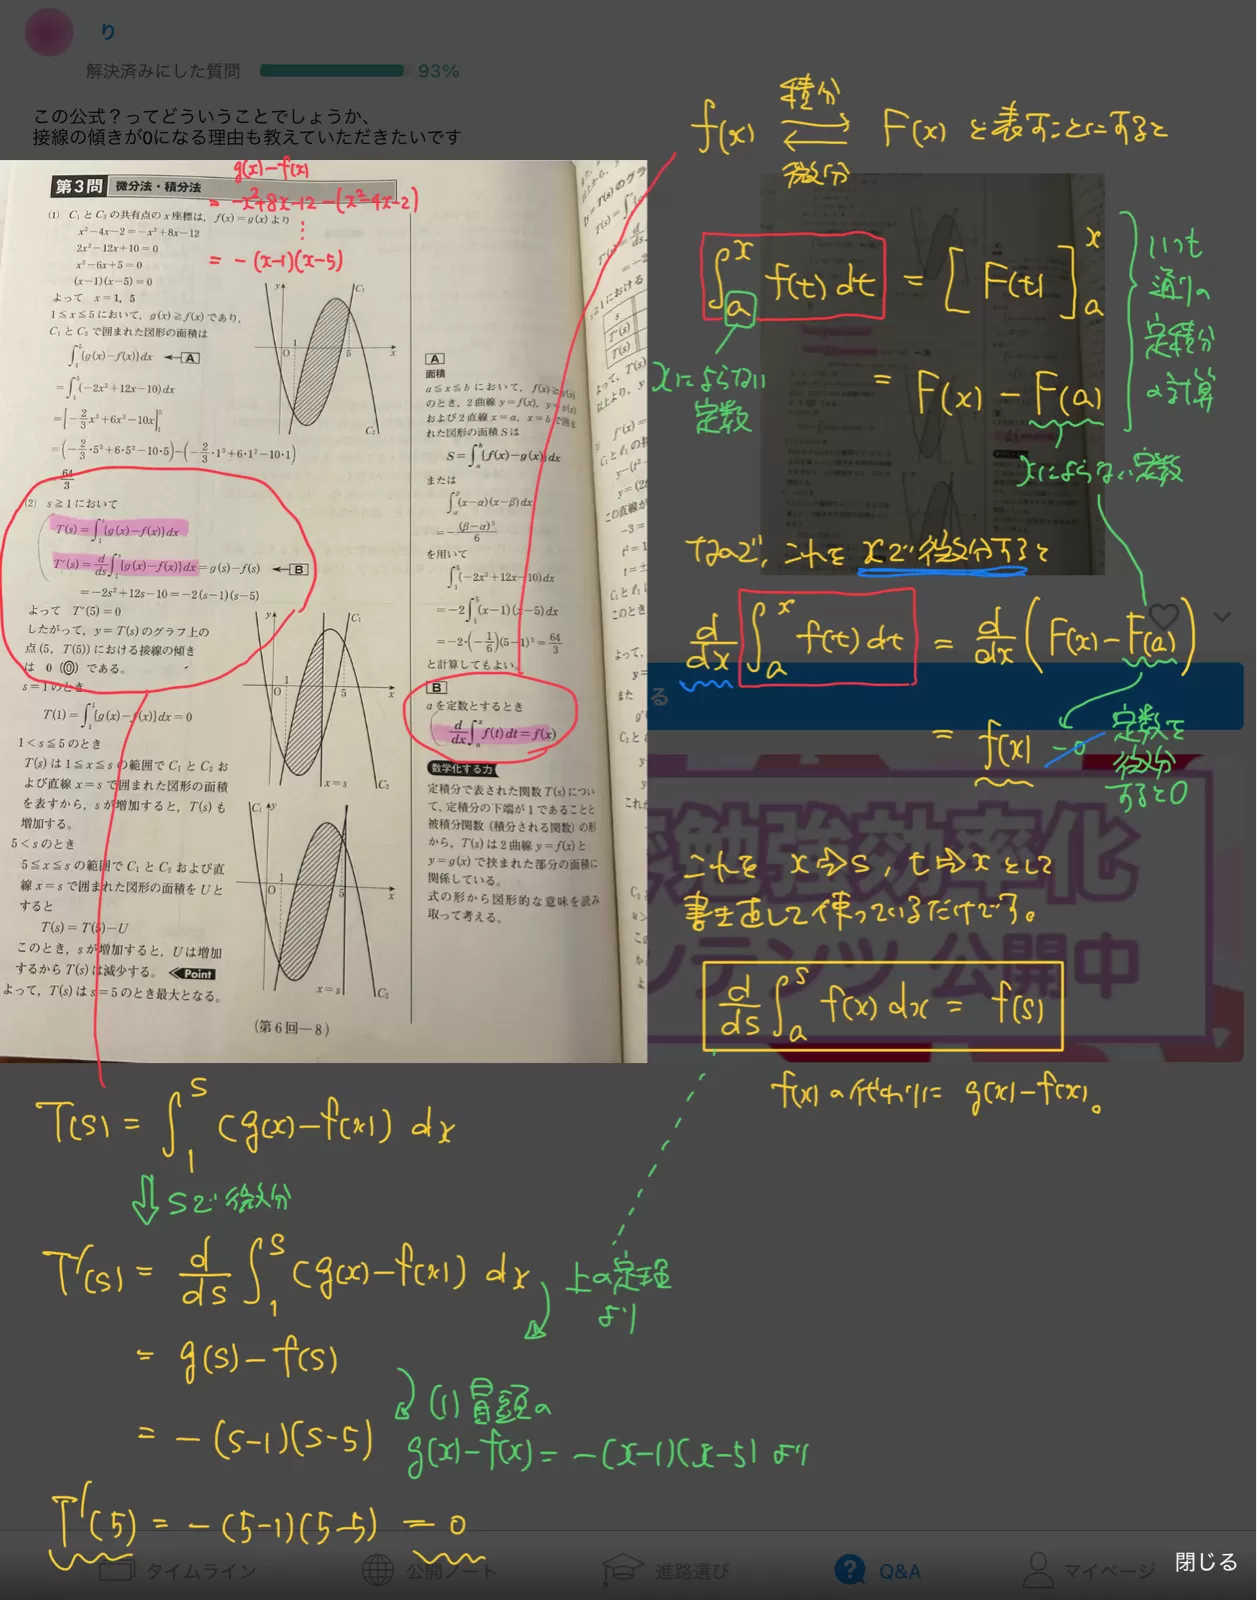 り
解決済みにした質問 93%
この公式？ってどういうことでしょうか、
接線の傾きが0になる理由も教えていただきたいです
g(x)-f(x)
= -x²+8x-12-(x²-4x-2)
⋮
= -(x-1)(x-5)
第3問 微分法・積分法
(1) C₁とC₂の共有点のx座標は，f(x)=g(x)より
x²-4x-2=-x²+8x-12
2x²-12x+10=0
x²-6x+5=0
(x-1)(x-5)=0
よって x=1, 5
1≦x≦5において，g(x)≧f(x)であり，
C₁とC₂で囲まれた図形の面積は
∫₁⁵{g(x)-f(x)}dx ◀A
=∫₁⁵(-2x²+12x-10)dx
=[-2/3x³+6x²-10x]₁⁵
=(-2/3・5³+6・5²-10・5)-(-2/3・1³+6・1²-10・1)
=64/3
(2) s≧1において
T(s)=∫₁ˢ{g(x)-f(x)}dx
T'(s)=d/ds∫₁ˢ{g(x)-f(x)}dx=g(s)-f(s) ◀B
=-2s²+12s-10=-2(s-1)(s-5)
よって T'(5)=0
したがって，y=T(s)のグラフ上の
点(5, T(5))における接線の傾き
は 0 (⓪) である。
s=1のとき
T(1)=∫₁¹{g(x)-f(x)}dx=0
1<s≦5のとき
T(s)は1≦x≦sの範囲でC₁とC₂お
よび直線x=sで囲まれた図形の面積
を表すから，sが増加すると，T(s)も
増加する。
5<sのとき
5≦x≦sの範囲でC₁とC₂および直
線x=sで囲まれた図形の面積をUと
すると
T(s)=T(5)-U
このとき，sが増加すると，Uは増加
するからT(s)は減少する。 ◀Point
よって，T(s)はs=5のとき最大となる。
y C₁
O 1 5 x
C₂
y C₁
O 1 5 x
x=s C₂
C₁ y
O 1 5 x
x=s C₂
A
面積
a≦x≦bにおいて，f(x)≧g(x)
のとき，2曲線y=f(x)，y=g(x)
および2直線x=a，x=bで囲ま
れた図形の面積Sは
S=∫ₐᵇ{f(x)-g(x)}dx
または
∫(x-α)(x-β)dx
=-(β-α)³/6
を用いて
∫₁⁵(-2x²+12x-10)dx
=-2∫₁⁵(x-1)(x-5)dx
=-2・(-1/6)(5-1)³=64/3
と計算してもよい。
B
aを定数とするとき
d/dx∫ₐˣf(t)dt=f(x)
数学化する力
定積分で表された関数T(s)につい
て，定積分の下端が1であることと
被積分関数（積分される関数）の形
から，T(s)は2曲線y=f(x)と
y=g(x)で挟まれた部分の面積に
関係している。
式の形から図形的な意味を読み
取って考える。
(第6回—8)
f(x) 積分 ⇄ 微分 F(x) と表すことにすると
∫ₐˣ f(t)dt = [F(t)]ₐˣ
xによらない
定数
= F(x) - F(a)
xによらない定数
いつも
通りの
定積分
の計算
なので、これをxで微分すると
d/dx ∫ₐˣ f(t)dt = d/dx (F(x)-F(a))
= f(x) -0
定数を
微分
すると0
これを x⇨s, t⇨x として
書き直して使っているだけです。
d/ds ∫ₐˢ f(x)dx = f(s)
f(x)の代わりに g(x)-f(x)。
勉強効率化
ンテンツ 公開中
T(s) = ∫₁ˢ (g(x)-f(x)) dx
⇓ sで微分
T'(s) = d/ds ∫₁ˢ (g(x)-f(x)) dx
上の定理
より
= g(s)-f(s)
(1)冒頭の
g(x)-f(x) = -(x-1)(x-5) より
= -(s-1)(s-5)
T'(5) = -(5-1)(5-5) = 0
タイムライン 公開ノート 進路選び Q&A マイページ 閉じる